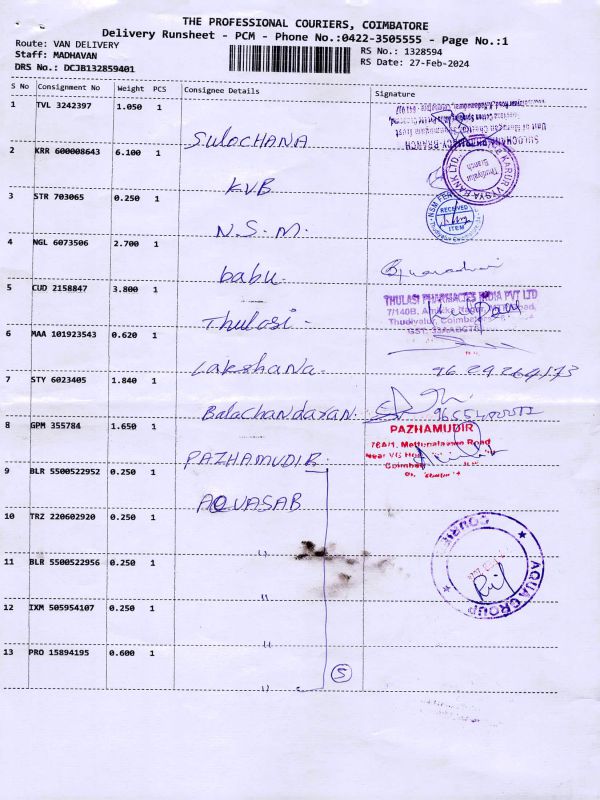 THE PROFESSIONAL COURIERS, COIMBATORE
Delivery Runsheet - PCM - Phone No.:0422-3505555 - Page No.:1
Route: VAN DELIVERY
Staff: MADHAVAN
DRS No.: DCJB132859401
RS No.: 1328594
RS Date: 27-Feb-2024
S No Consignment No Weight PCS Consignee Details Signature
1 TVL 3242397 1.050 1 Sulochana
SULOCHANA
2 KRR 600008643 6.100 1 KVB
KARUR VYSYA BANK LTD.
Thudiyalur
Branch
3 STR 703065 0.250 1 N.S.M.
RECEIVED
ITEM
4 NGL 6073506 2.700 1 babu.
5 CUD 2158847 3.800 1 Thulasi-
THULASI PHARMACIES INDIA PVT LTD
6 MAA 101923543 0.620 1 Lakshana.
7 STY 6023405 1.840 1 Balachandaran.
8 GPM 355784 1.650 1 PAZHAMUDIR.
PAZHAMUDIR
9 BLR 5500522952 0.250 1 AQUASAB
10 TRZ 220602920 0.250 1 "
11 BLR 5500522956 0.250 1 "
AQUA GROUP
COURIER
12 IXM 505954107 0.250 1 "
13 PRO 15894195 0.600 1 "
5